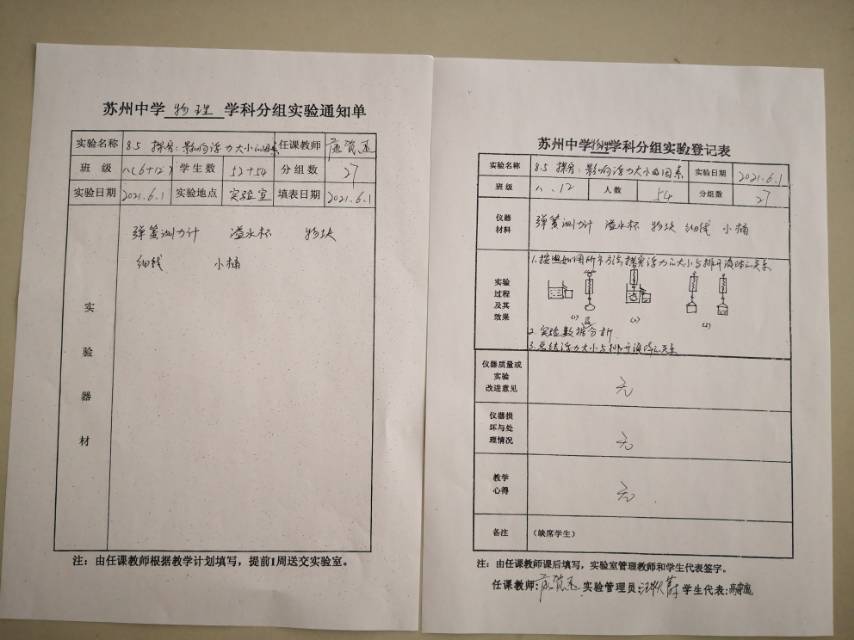 苏州中学 物理 学科分组实验通知单
实验名称 8.5 探究:影响浮力大小的因素 任课教师
班 级 八(6+12) 学生数 52+54 分组数 27
实验日期 2021.6.1 实验地点 实验室 填表日期 2021.6.1
实验器材
弹簧测力计 溢水杯 物块
细线 小桶
注：由任课教师根据教学计划填写，提前1周送交实验室。
苏州中学物理学科分组实验登记表
实验名称 8.5 探究:影响浮力大小的因素 实验日期 2021.6.1
班 级 八.12 人数 54 分组数 27
仪器材料 弹簧测力计 溢水杯 物块 细线 小桶
实验过程及其效果
1.按照如图所示方法,探究浮力之大小与排开液体之关系
(1) (3) (2)
2.实验数据分析.
3.总结浮力大小与排开液体之关系
仪器质量或实验改进意见 无
仪器损坏与处理情况 无
教学心得 无
备注 (缺席学生)
注：由任课教师课后填写，实验室管理教师和学生代表签字。
任课教师: 实验管理员: 学生代表: